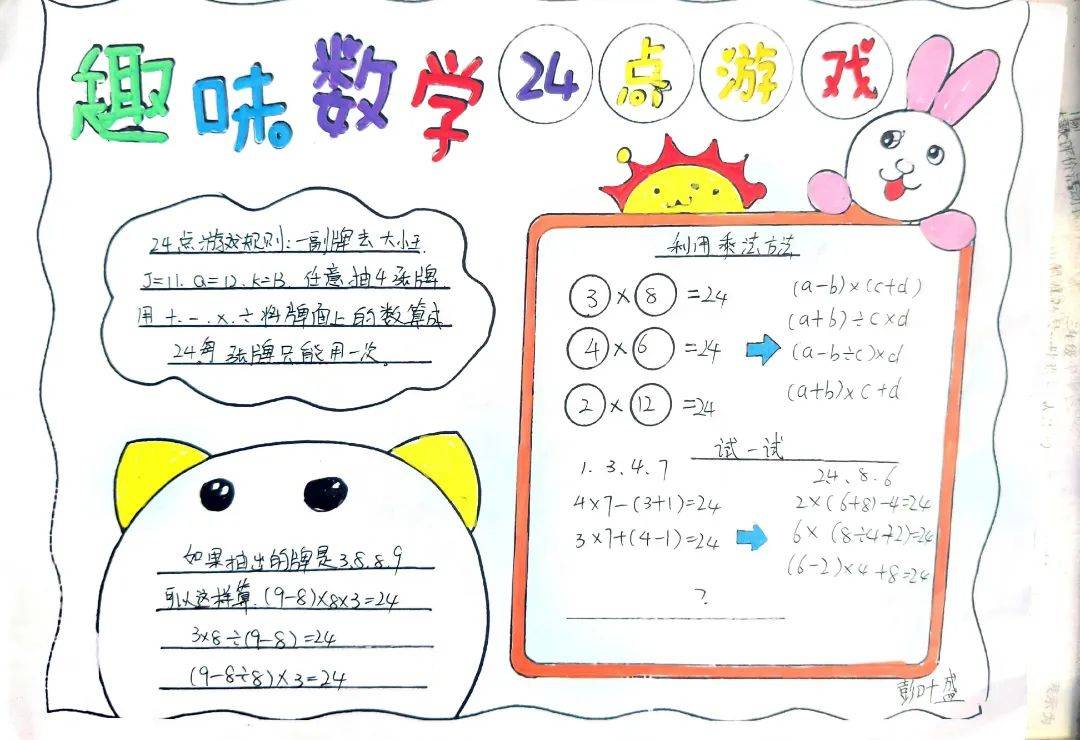 趣味数学24点游戏
24点游戏规则:一副牌去大小王.
J=11.Q=12.K=13.任意抽4张牌
用+.-.×.÷将牌面上的数算成
24每张牌只能用一次.
如果抽出的牌是3.8.8.9
可以这样算.(9-8)×8×3=24
3×8÷(9-8)=24
(9-8÷8)×3=24
利用乘法方法
3×8=24
4×6=24
2×12=24
(a-b)×(c+d)
(a+b)÷c×d
(a-b÷c)×d
(a+b)×c+d
试一试
1.3.4.7
4×7-(3+1)=24
3×7+(4-1)=24
24.8.6
2×(6+8)-4=24
6×(8÷4+2)=24
(6-2)×4+8=24
?
彭叶盛